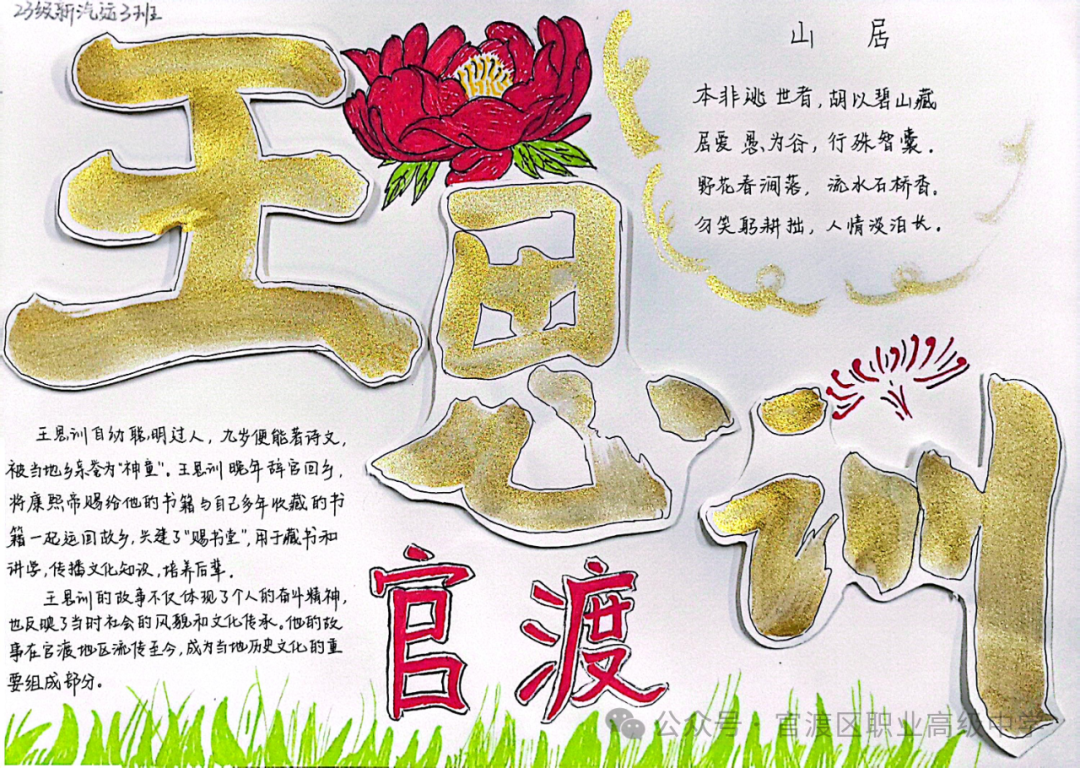 23级新汽运3班
王思训
山 居
本非逃世者，胡以碧山藏
居爱愚为谷，行殊智囊．
野花香涧落，流水石桥香．
勿笑躬耕拙，人情淡泊长．
王思训自幼聪明过人，九岁便能著诗文，
被当地乡亲誉为“神童”．王思训晚年辞官回乡，
将康熙帝赐给他的书籍与自己多年收藏的书
籍一起运回故乡，兴建了“赐书堂”，用于藏书和
讲学，传播文化知识，培养后辈．
王思训的故事不仅体现了个人的奋斗精神，
也反映了当时社会的风貌和文化传承．他的故
事在官渡地区流传至今，成为当地历史文化的重
要组成部分．
官渡
公众号·官渡区职业高级中学